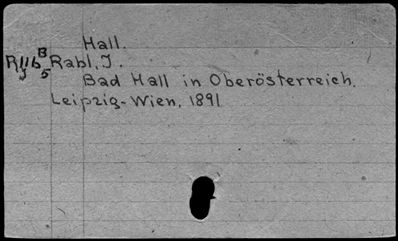 Hall.
Rabl, J.
Bad Hall in Oberösterreich.
Leipzig-Wien, 1891